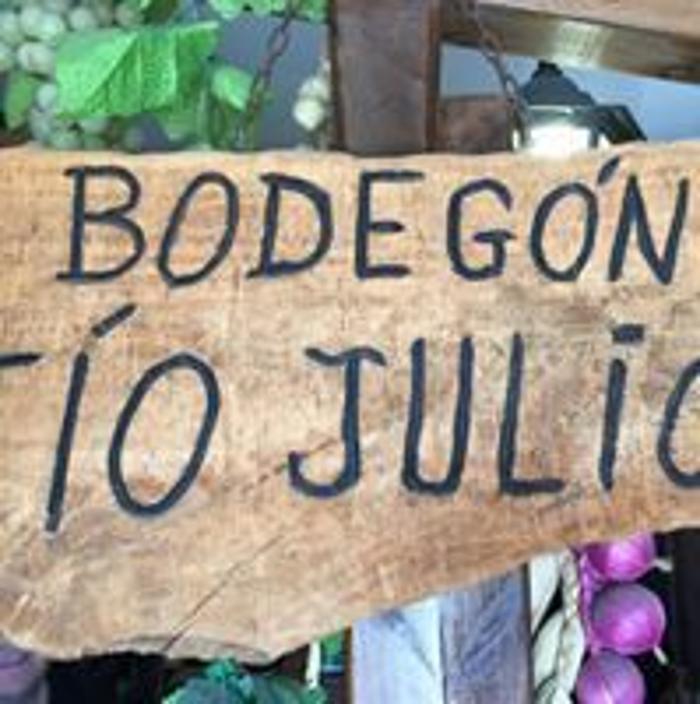 BODEGÓN
TÍO JULiO